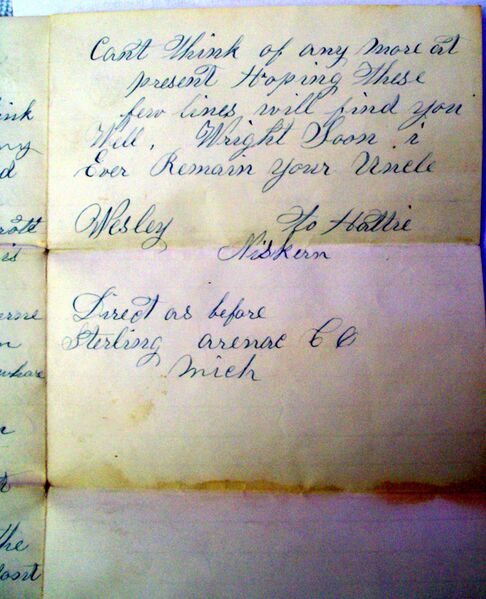 Cant think of any more at
present Hoping these
few lines will find you
Well, Wright Soon i
Ever Remain your Uncle
Wesley to Hattie
Niskern
Direct as before
Sterling arenac CO
Mich
ink
my
d
rott
is
erne
n
whare
n
t
the
dont